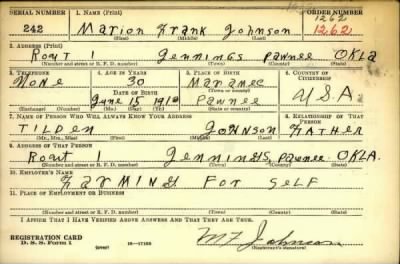 SERIAL NUMBER 1. NAME (Print) ORDER NUMBER
1262
242 Marion Frank Johnson 1262
(First) (Middle) (Last)
2. ADDRESS (Print)
Rout 1 Jennings Pawnee OKLA
(Number and street or R. F. D. number) (Town) (County) (State)
3. TELEPHONE 4. AGE IN YEARS 5. PLACE OF BIRTH 6. COUNTRY OF CITIZENSHIP
None 30 Maramec
DATE OF BIRTH (Town or county)
June 15 1910 Pawnee U.S.A
(Exchange) (Number) (Mo.) (Day) (Yr.) (State or country)
7. NAME OF PERSON WHO WILL ALWAYS KNOW YOUR ADDRESS 8. RELATIONSHIP OF THAT PERSON
TILDEN JOHNSON FATHER
(Mr., Mrs., Miss) (First) (Middle) (Last)
9. ADDRESS OF THAT PERSON
Rout 1 JENNINGS, Pawnee OKLA.
(Number and street or R. F. D. number) (Town) (County) (State)
10. EMPLOYER'S NAME
FARMING FOR SELF
11. PLACE OF EMPLOYMENT OR BUSINESS
(Number and street or R. F. D. number) (Town) (County) (State)
I AFFIRM THAT I HAVE VERIFIED ABOVE ANSWERS AND THAT THEY ARE TRUE.
REGISTRATION CARD
D. S. S. Form 1 16—17105 M F Johnson
(Registrant's signature)